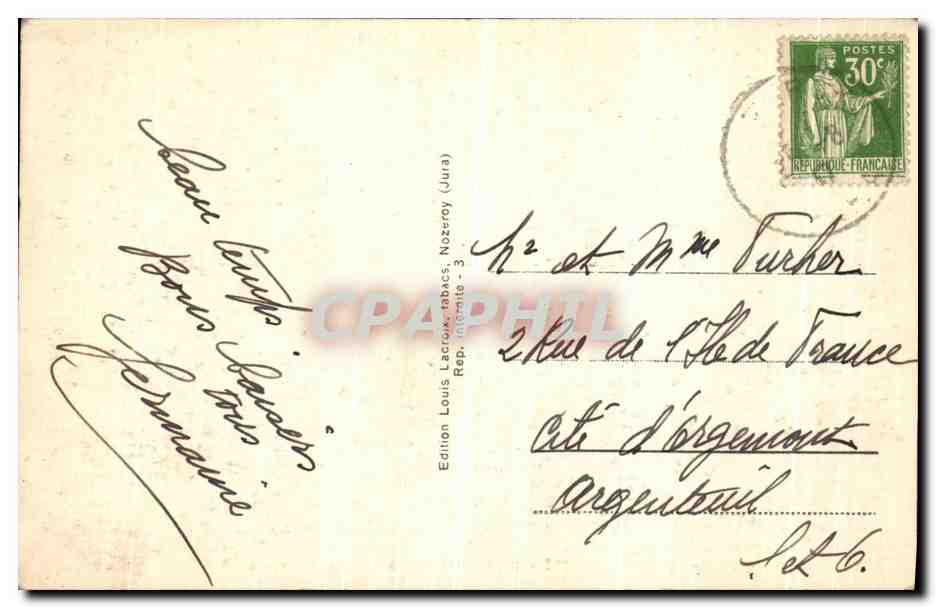 beau temps
Bons baisers
tous
Germaine
Edition Louis Lacroix, tabacs, Nozeroy (Jura)
Rep. interdite - 3
POSTES
30c
REPUBLIQUE-FRANCAISE
Mr et Mme Turher
2 Rue de l'Ile de France
Cité d'Orgemont
Argenteuil
S et O.
CPAPHIL